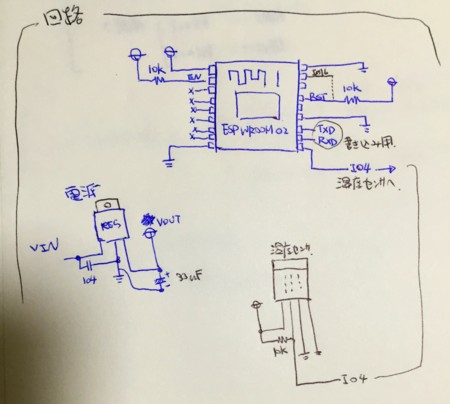 回路
10k
EN
IO16
RST
10k
x
x
x
x
x
ESP WROOM 02
TXD
RXD
書き込み用
IO4
温度センサへ
電源
REG
VOUT
VIN
104
33uF
温度センサ
10k
IO4